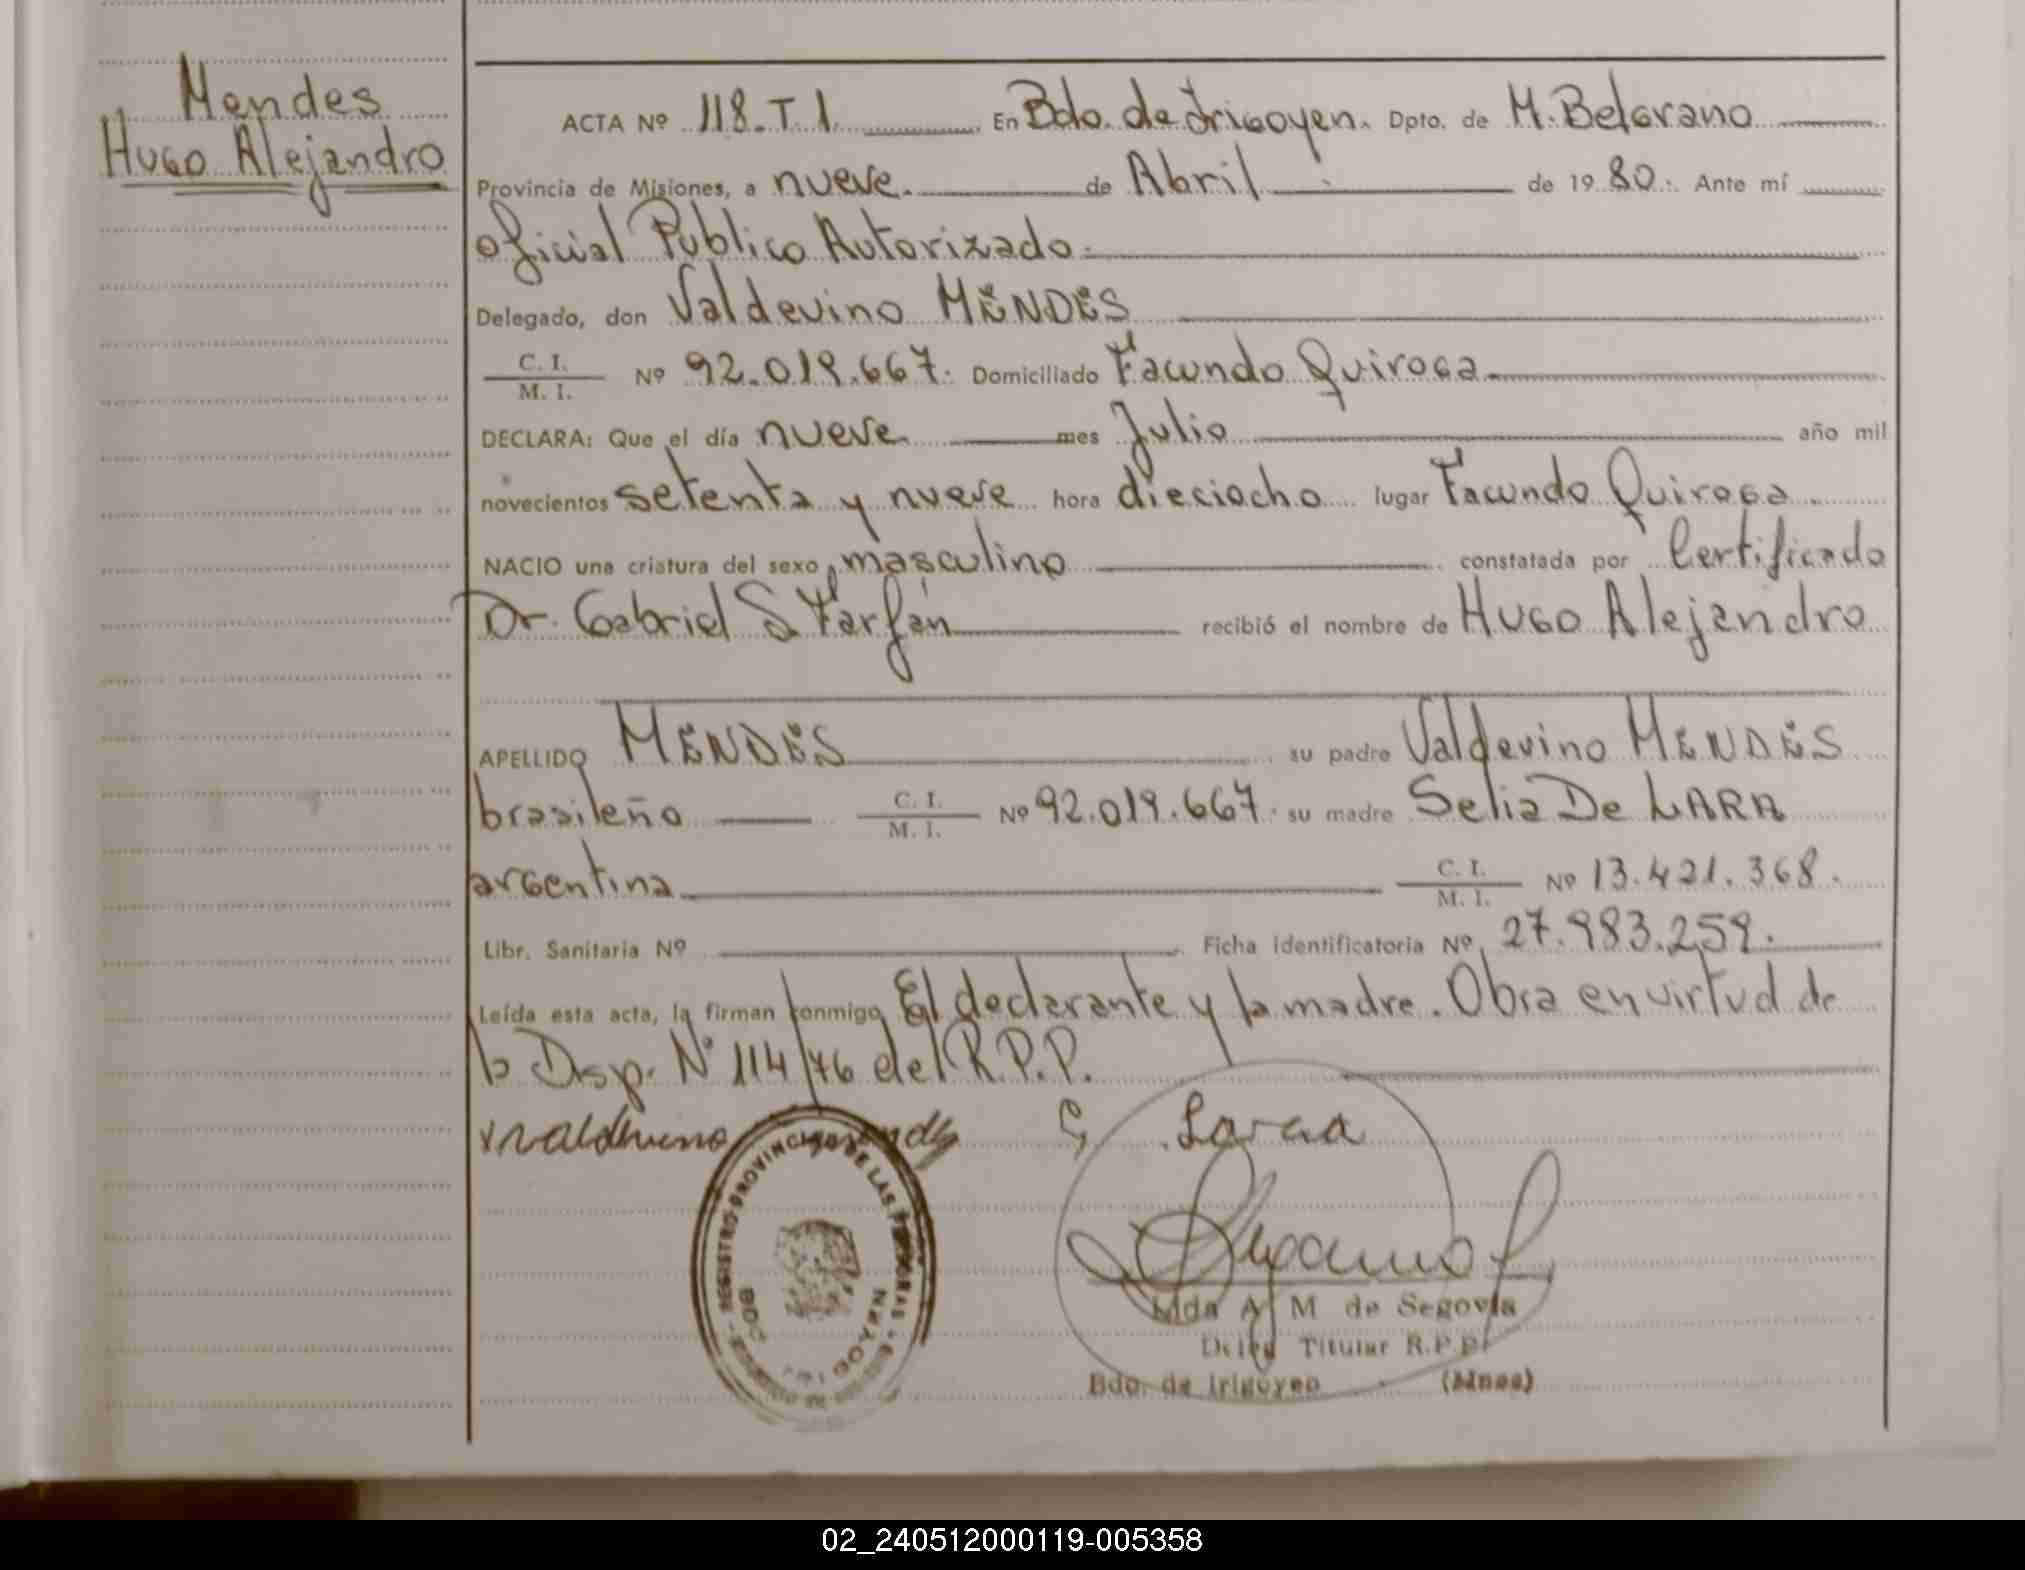 Mendes
Hugo Alejandro
ACTA Nº 118.T I. En Bdo. de Irigoyen. Dpto. de M. Belgrano
Provincia de Misiones, a nueve. de Abril de 1980. Ante mí
oficial Publico Autorizado.
Delegado, don Valdevino MENDES
C. I.
M. I. Nº 92.019.667. Domiciliado Facundo Quiroga
DECLARA: Que el día nueve mes Julio año mil
novecientos setenta y nueve hora dieciocho lugar Facundo Quiroga.
NACIO una criatura del sexo masculino constatada por Certificado
Dr. Gabriel S Farfán recibió el nombre de Hugo Alejandro
APELLIDO MENDES su padre Valdevino MENDES
brasileño C. I.
M. I. Nº 92.019.667. su madre Selia De LARA
argentina C. I.
M. I. Nº 13.421.368.
Libr. Sanitaria Nº Ficha identificatoria Nº 27.983.259.
Leída esta acta, la firman conmigo El declarante y la madre. Obra en virtud de
la Disp. Nº 114/76 del R.P.P.
REGISTRO PROVINCIAL DE LAS PERSONAS
A M de Segovia
Titular R.P.P.
Bdo. de Irigoyen (Mnes)
02_240512000119-005358